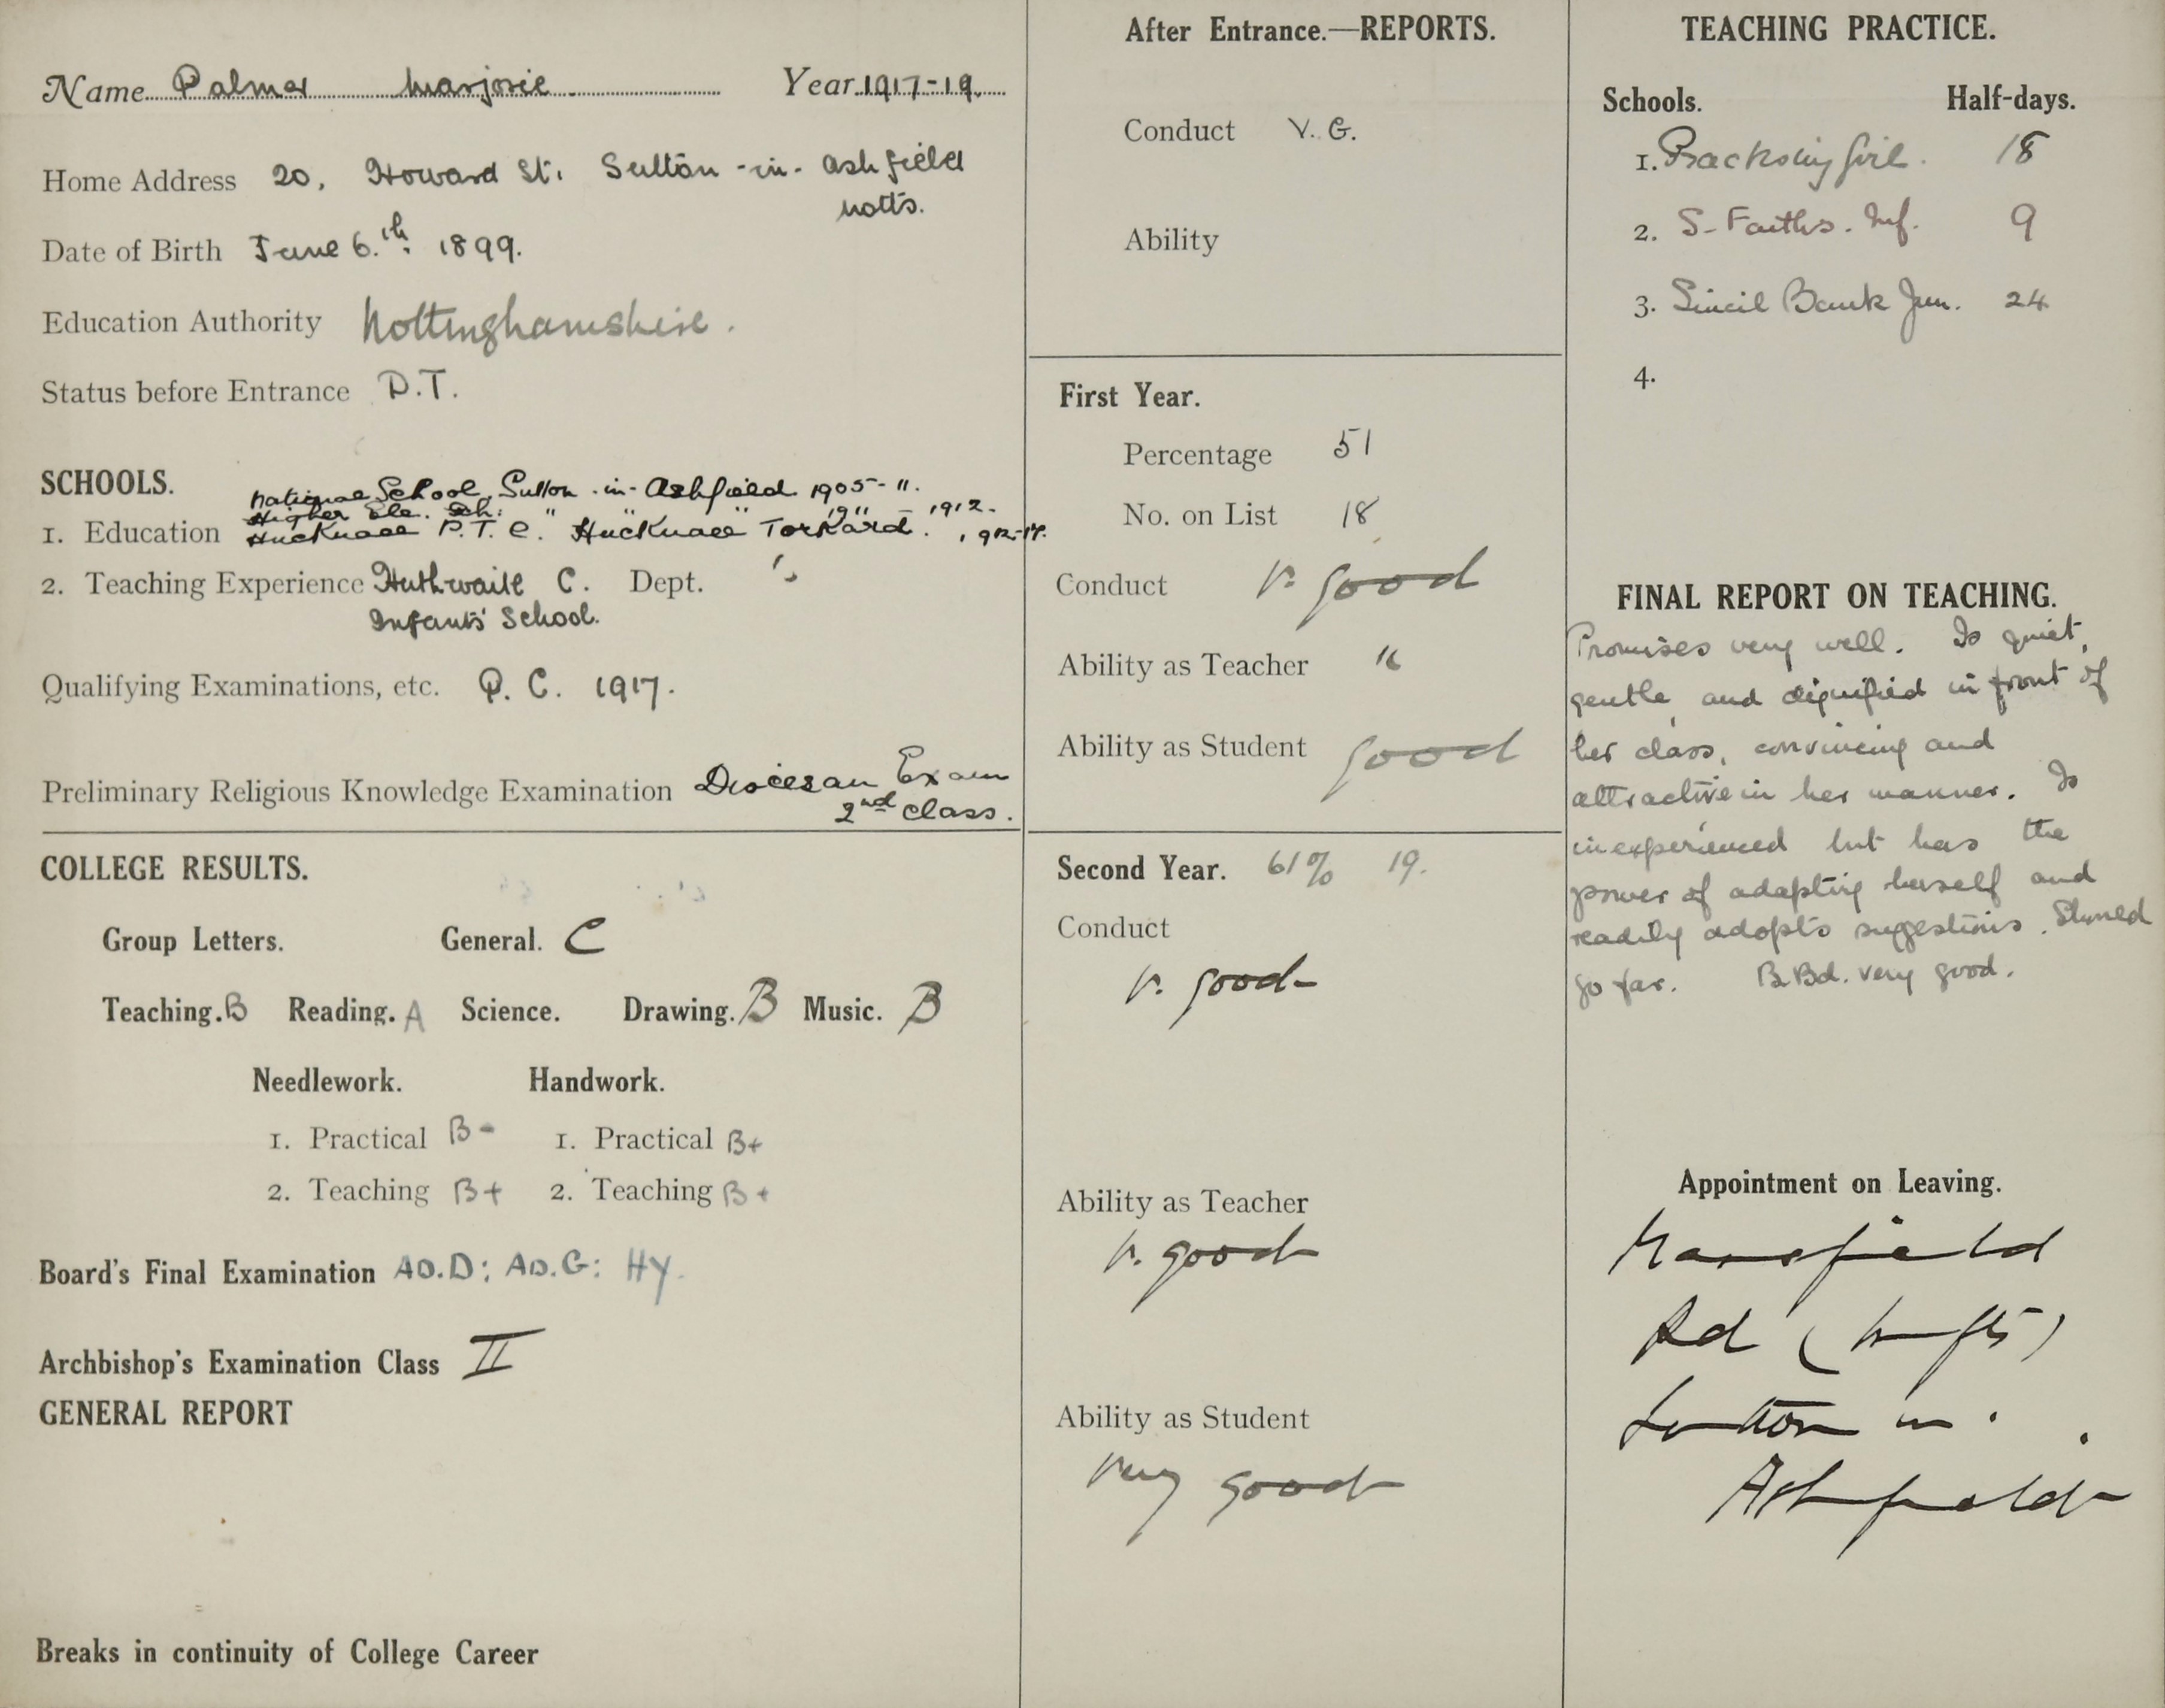 Name Palmer Marjorie Year 1917-19.
Home Address 20, Howard St. Sutton-in-Ashfield
Notts.
Date of Birth June 6.th 1899.
Education Authority Nottinghamshire.
Status before Entrance P.T.
SCHOOLS.
National School, Sutton-in-Ashfield 1905-11.
Higher Ele. Sch. " " " 1911-1912.
1. Education Hucknall P.T.C. Hucknall Torkard. 1912-17.
2. Teaching Experience Huthwaite C. Dept.
Infants' School.
Qualifying Examinations, etc. P.C. 1917.
Preliminary Religious Knowledge Examination Diocesan Exam
2nd class.
COLLEGE RESULTS.
Group Letters. General. C
Teaching. B Reading. A Science. Drawing. B Music. B
Needlework. Handwork.
1. Practical B- 1. Practical B+
2. Teaching B+ 2. Teaching B+
Board's Final Examination AD.D; AD.G: Hy.
Archbishop's Examination Class II
GENERAL REPORT
Breaks in continuity of College Career
After Entrance.—REPORTS.
Conduct V.G.
Ability
First Year.
Percentage 51
No. on List 18
Conduct V. good
Ability as Teacher "
Ability as Student good
Second Year. 61% 19.
Conduct
V. good
Ability as Teacher
V. good
Ability as Student
Very good
TEACHING PRACTICE.
Schools. Half-days.
1. Practising Girls. 18
2. S. Faiths. Inf. 9
3. Sincil Bank Jun. 24
4.
FINAL REPORT ON TEACHING.
Promises very well. Is quiet,
gentle, and dignified in front of
her class, convincing and
attractive in her manner. Is
inexperienced but has the
power of adapting herself and
readily adopts suggestions. Should
go far. B.Bd. very good.
Appointment on Leaving.
Mansfield
Rd (Infts)
Sutton in
Ashfield